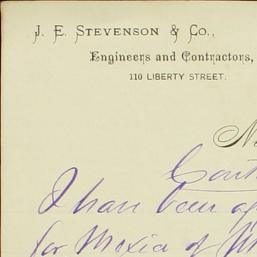 J. E. STEVENSON & CO.,
Engineers and Contractors,
110 LIBERTY STREET.
I have been
for Mexico of